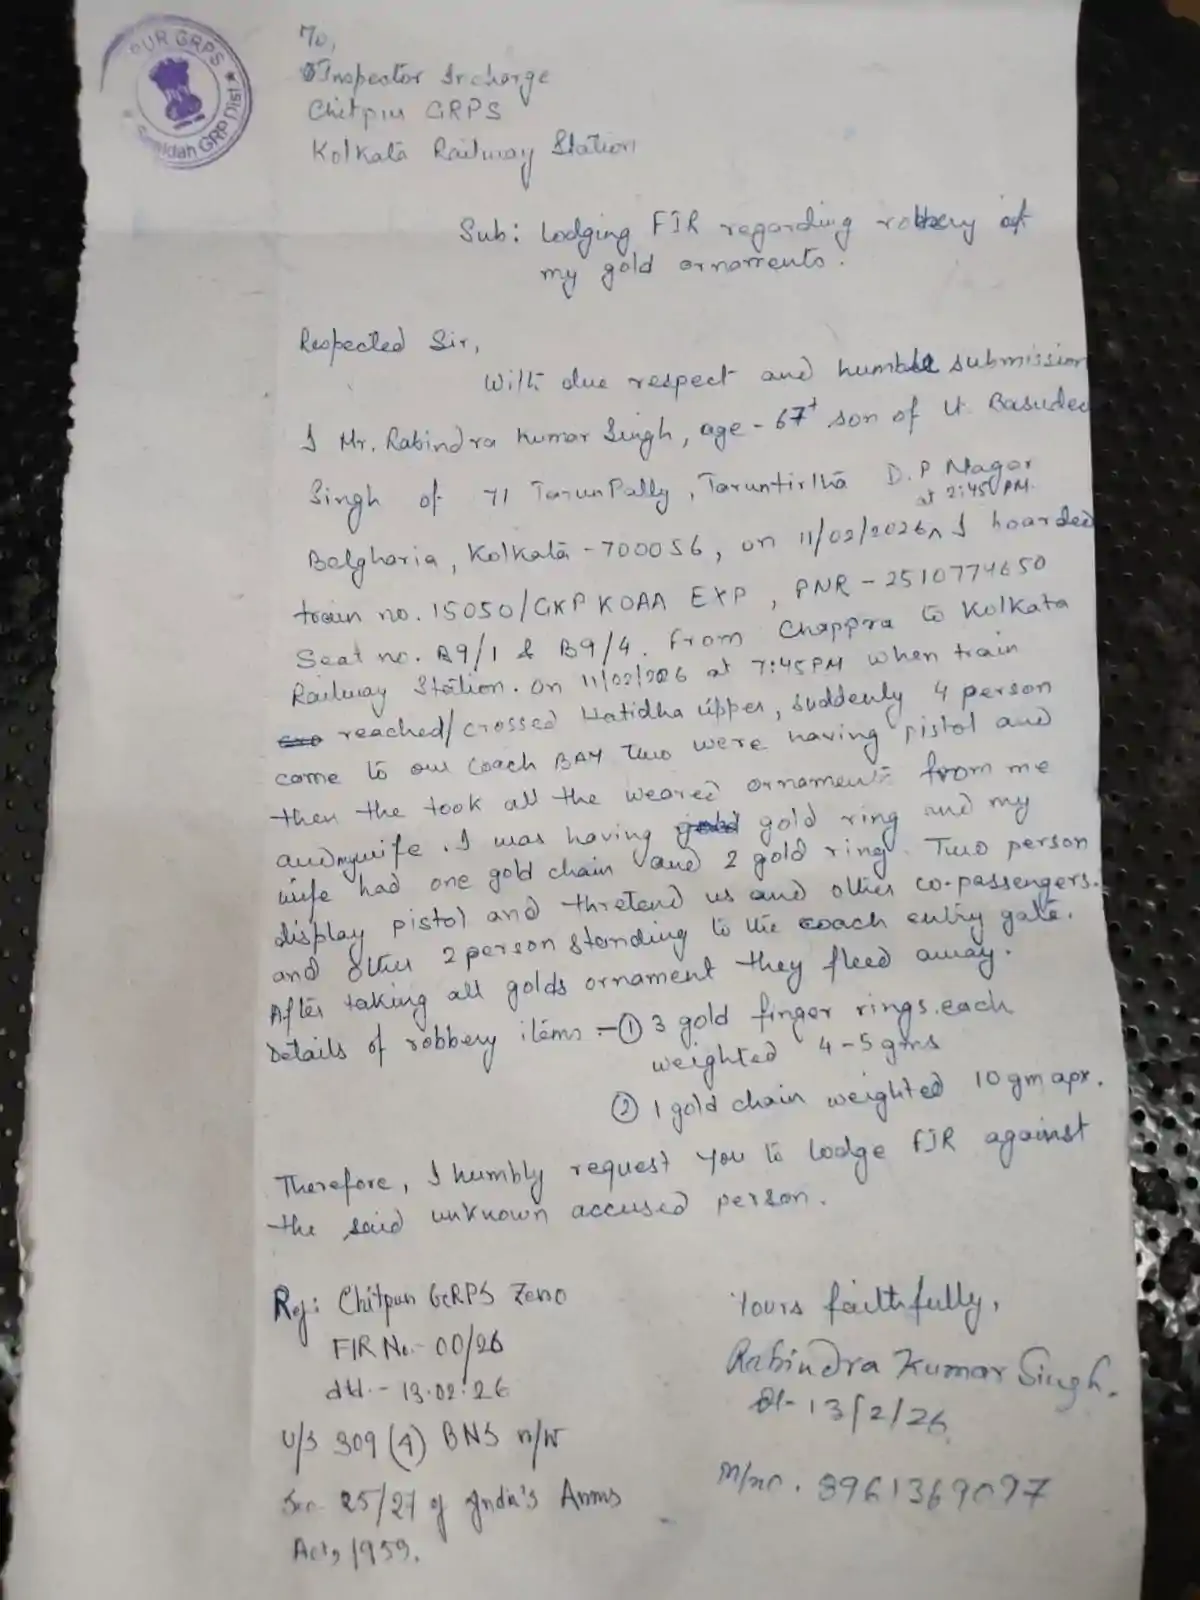 PUR GRPS ★
Sealdah GRP Dist.
To,
Inspector Incharge
Chitpur GRPS
Kolkata Railway Station
Sub: Lodging FIR regarding robbery of
my gold ornaments.
Respected Sir,
With due respect and humble submission
I Mr. Rabindra Kumar Singh, age - 67+ son of Lt. Basudeo
Singh of 71 TarunPally, Taruntirtha D.P Nagar
at 2:45 PM.
Belgharia, Kolkata - 700056, on 11/02/2026 ^ I boarded
train no. 15050/GKP KOAA EXP, PNR - 2510774650
Seat no. B9/1 & B9/4. From Chappra to Kolkata
Railway Station. On 11/02/2026 at 7:45 PM when train
reached/crossed Hatidha upper, suddenly 4 person
came to our coach Two were having pistol and
then the took all the weared ornaments from me
and my wife. I was having gold ring and my
wife had one gold chain and 2 gold ring. Two person
display pistol and thretend us and other co-passengers.
and other 2 person standing to the coach entry gate.
After taking all golds ornament they fleed away.
Details of robbery items :- ① 3 gold finger rings. each
weighted 4-5 gms
② 1 gold chain weighted 10 gm apx.
Therefore, I humbly request you to lodge FIR against
the said unknown accused person.
Ref: Chitpur GRPS Zero
FIR No.- 00/26
dtd.- 13.02.26
U/S 309 (4) BNS r/w
Sec 25/27 of India's Arms
Act, 1959.
Yours faithfully,
Rabindra Kumar Singh.
Dt- 13/2/26
M/no. 8961369097